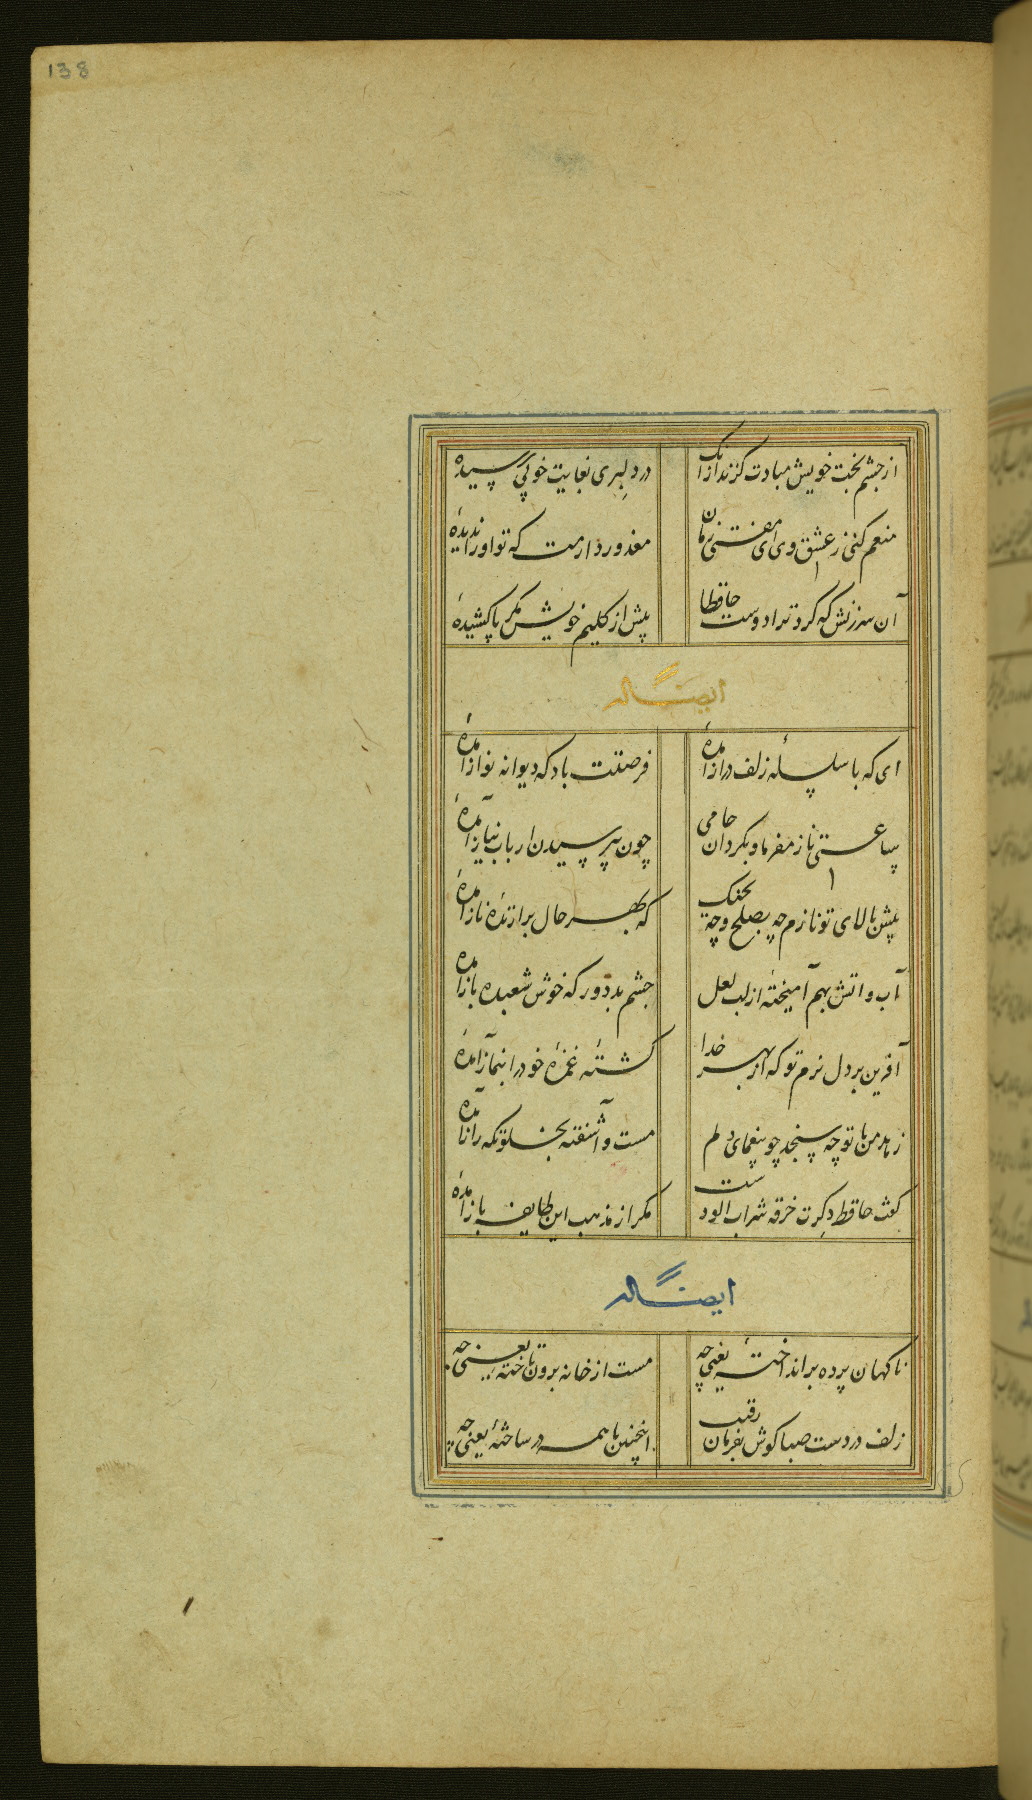 138
از چشم بخت خویش مبادت گزند از آنک
در دلبری بغایت خوبی رسیدهٔ
منعم کنی ز عشق وی ای مفتی زمان
معذور دارمت که تو او را ندیدهٔ
آن سرزنش که کرد ترا دوست حافظا
پیش از گلیم خویش مگر پا کشیدهٔ
ایضاً له
ای که با سلسلهٔ زلف دراز آمدهٔ
فرصتت باد که دیوانه نواز آمدهٔ
ساعتی ناز مفرما و بگردان
چون بپرسیدن ارباب نیاز آمدهٔ
پیش بالای تو نازم چه بصلح و چه بجنک
که بهر حال برازندهٔ ناز آمدهٔ
آب و آتش بهم آمیختهٔ از لب لعل
چشم بد دور که خوش شعبده باز آمدهٔ
آفرین بر دل نرم تو که از بهر خدا
کشتهٔ غمزهٔ خود را بنماز آمدهٔ
زهد من با تو چه سنجد چو بیغمای دلم
مست و آشفته بخلوتگه راز آمدهٔ
گفت حافظ دگرت خرقه شراب آلودست
مگر از مذهب این طایفه باز آمدهٔ
ایضاً له
ناگهان پرده برانداختهٔ یعنی چه
مست از خانه برون تاختهٔ یعنی چه
زلف در دست صبا گوش بفرمان رقیب
اینچنین با همه در ساختهٔ یعنی چه